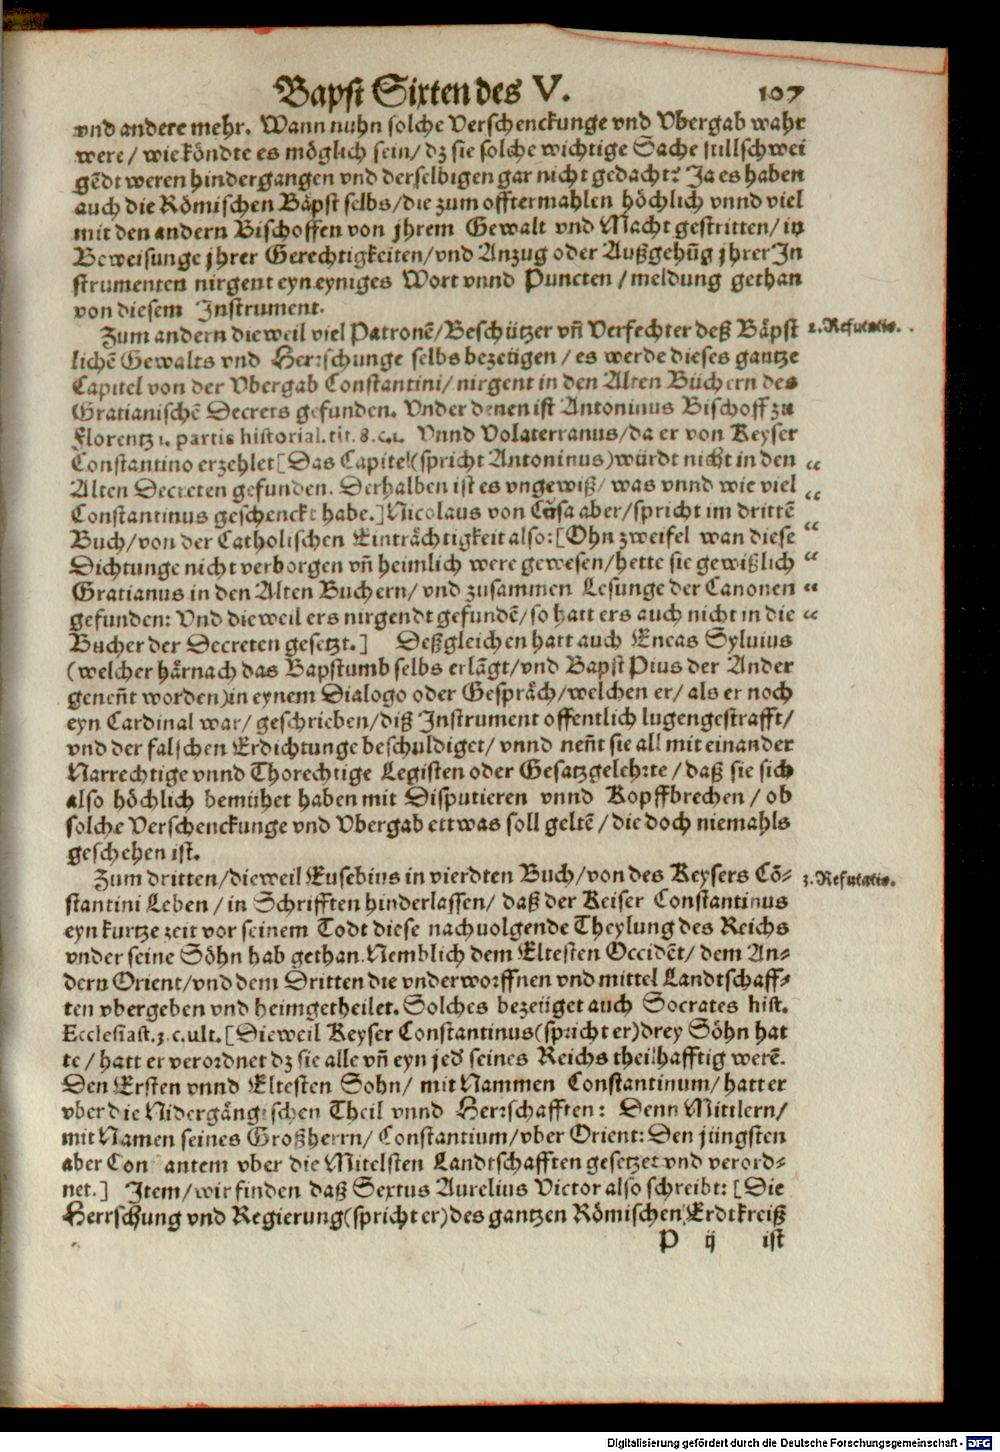 Bapst Sixten des V. 107
vnd andere mehr. Wann nuhn solche Verschenckunge vnd Vbergab wahr
were / wie köndte es möglich sein / dz sie solche wichtige Sache stillschwei
gēdt weren hindergangen vnd derselbigen gar nicht gedacht? Ja es haben
auch die Römischen Bäpst selbs / die zum offtermahlen höchlich vnnd viel
mit den andern Bischoffen von jhrem Gewalt vnd Macht gestritten / in
Beweisunge jhrer Gerechtigkeiten / vnd Anzug oder Außgehūg jhrer In
strumenten nirgent eyn eyniges Wort vnnd Puncten / meldung gethan
von diesem Instrument.
Zum andern dieweil viel Patronē / Beschützer vñ Verfechter deß Bäpst 2. Refutatio.
lichē Gewalts vnd Herrschunge selbs bezeügen / es werde dieses gantze
Capitel von der Vbergab Constantini / nirgent in den Alten Büchern des
Gratianischē Decrets gefunden. Vnder denen ist Antoninus Bischoff zu
Florentz 1. partis historial. tit. 8. c. 1. Vnnd Volaterranus / da er von Keyser
Constantino erzehlet [Das Capitel (spricht Antoninus) würdt nicht in den “
Alten Decreten gefunden. Derhalben ist es vngewiß / was vnnd wie viel
Constantinus geschenckt habe.] Nicolaus von Cusa aber / spricht im drittē “
Buch / von der Catholischen Einträchtigkeit also: [Ohn zweifel wan diese “
Dichtunge nicht verborgen vñ heimlich were gewesen / hette sie gewißlich “
Gratianus in den Alten Buchern / vnd zusammen Lesunge der Canonen “
gefunden: Vnd dieweil ers nirgendt gefundē / so hatt ers auch nicht in die “
Bücher der Decreten gesetzt.] Deßgleichen hatt auch Eneas Syluius
(welcher härnach das Bapstumb selbs erlāgt / vnd Bapst Pius der Ander
geneñt worden) in eynem Dialogo oder Gespräch / welchen er / als er noch
eyn Cardinal war / geschrieben / diß Instrument offentlich lugengestrafft /
vnd der falschen Erdichtunge beschuldiget / vnnd neñt sie all mit einander
Narrechtige vnnd Thorechtige Legisten oder Gesatzgelehrte / daß sie sich
also höchlich bemühet haben mit Disputieren vnnd Kopffbrechen / ob
solche Verschenckunge vnd Vbergab ettwas soll geltē / die doch niemahls
geschehen ist.
Zum dritten / dieweil Eusebius in vierdten Buch / von des Keysers Cō- 3. Refutatio.
stantini Leben / in Schrifften hinderlassen / daß der Keiser Constantinus
eyn kurtze zeit vor seinem Todt diese nachuolgende Theylung des Reichs
vnder seine Söhn hab gethan. Nemblich dem Eltesten Occidēt / dem An-
dern Orient / vnd dem Dritten die vnderworffnen vnd mittel Landtschaff-
ten vbergeben vnd heimgetheilet. Solches bezeüget auch Socrates hist.
Ecclesiast. 3. c. vlt. [Dieweil Keyser Constantinus (spricht er) drey Söhn hat
te / hatt er verordnet dz sie alle vñ eyn jed seines Reichs theilhafftig werē.
Den Ersten vnnd Eltesten Sohn / mit Nammen Constantinum / hatt er
vber die Nidergängischen Theil vnnd Herrschafften: Denn Mittlern /
mit Namen seines Großherrn / Constantium / vber Orient: Den jüngsten
aber Con antem vber die Mitelsten Landtschafften gesetzet vnd verord-
net.] Item / wir finden daß Sextus Aurelius Victor also schreibt: [Die
Herrschung vnd Regierung (spricht er) des gantzen Römischen Erdtkreiß
P ij ist
Digitalisierung gefördert durch die Deutsche Forschungsgemeinschaft - DFG